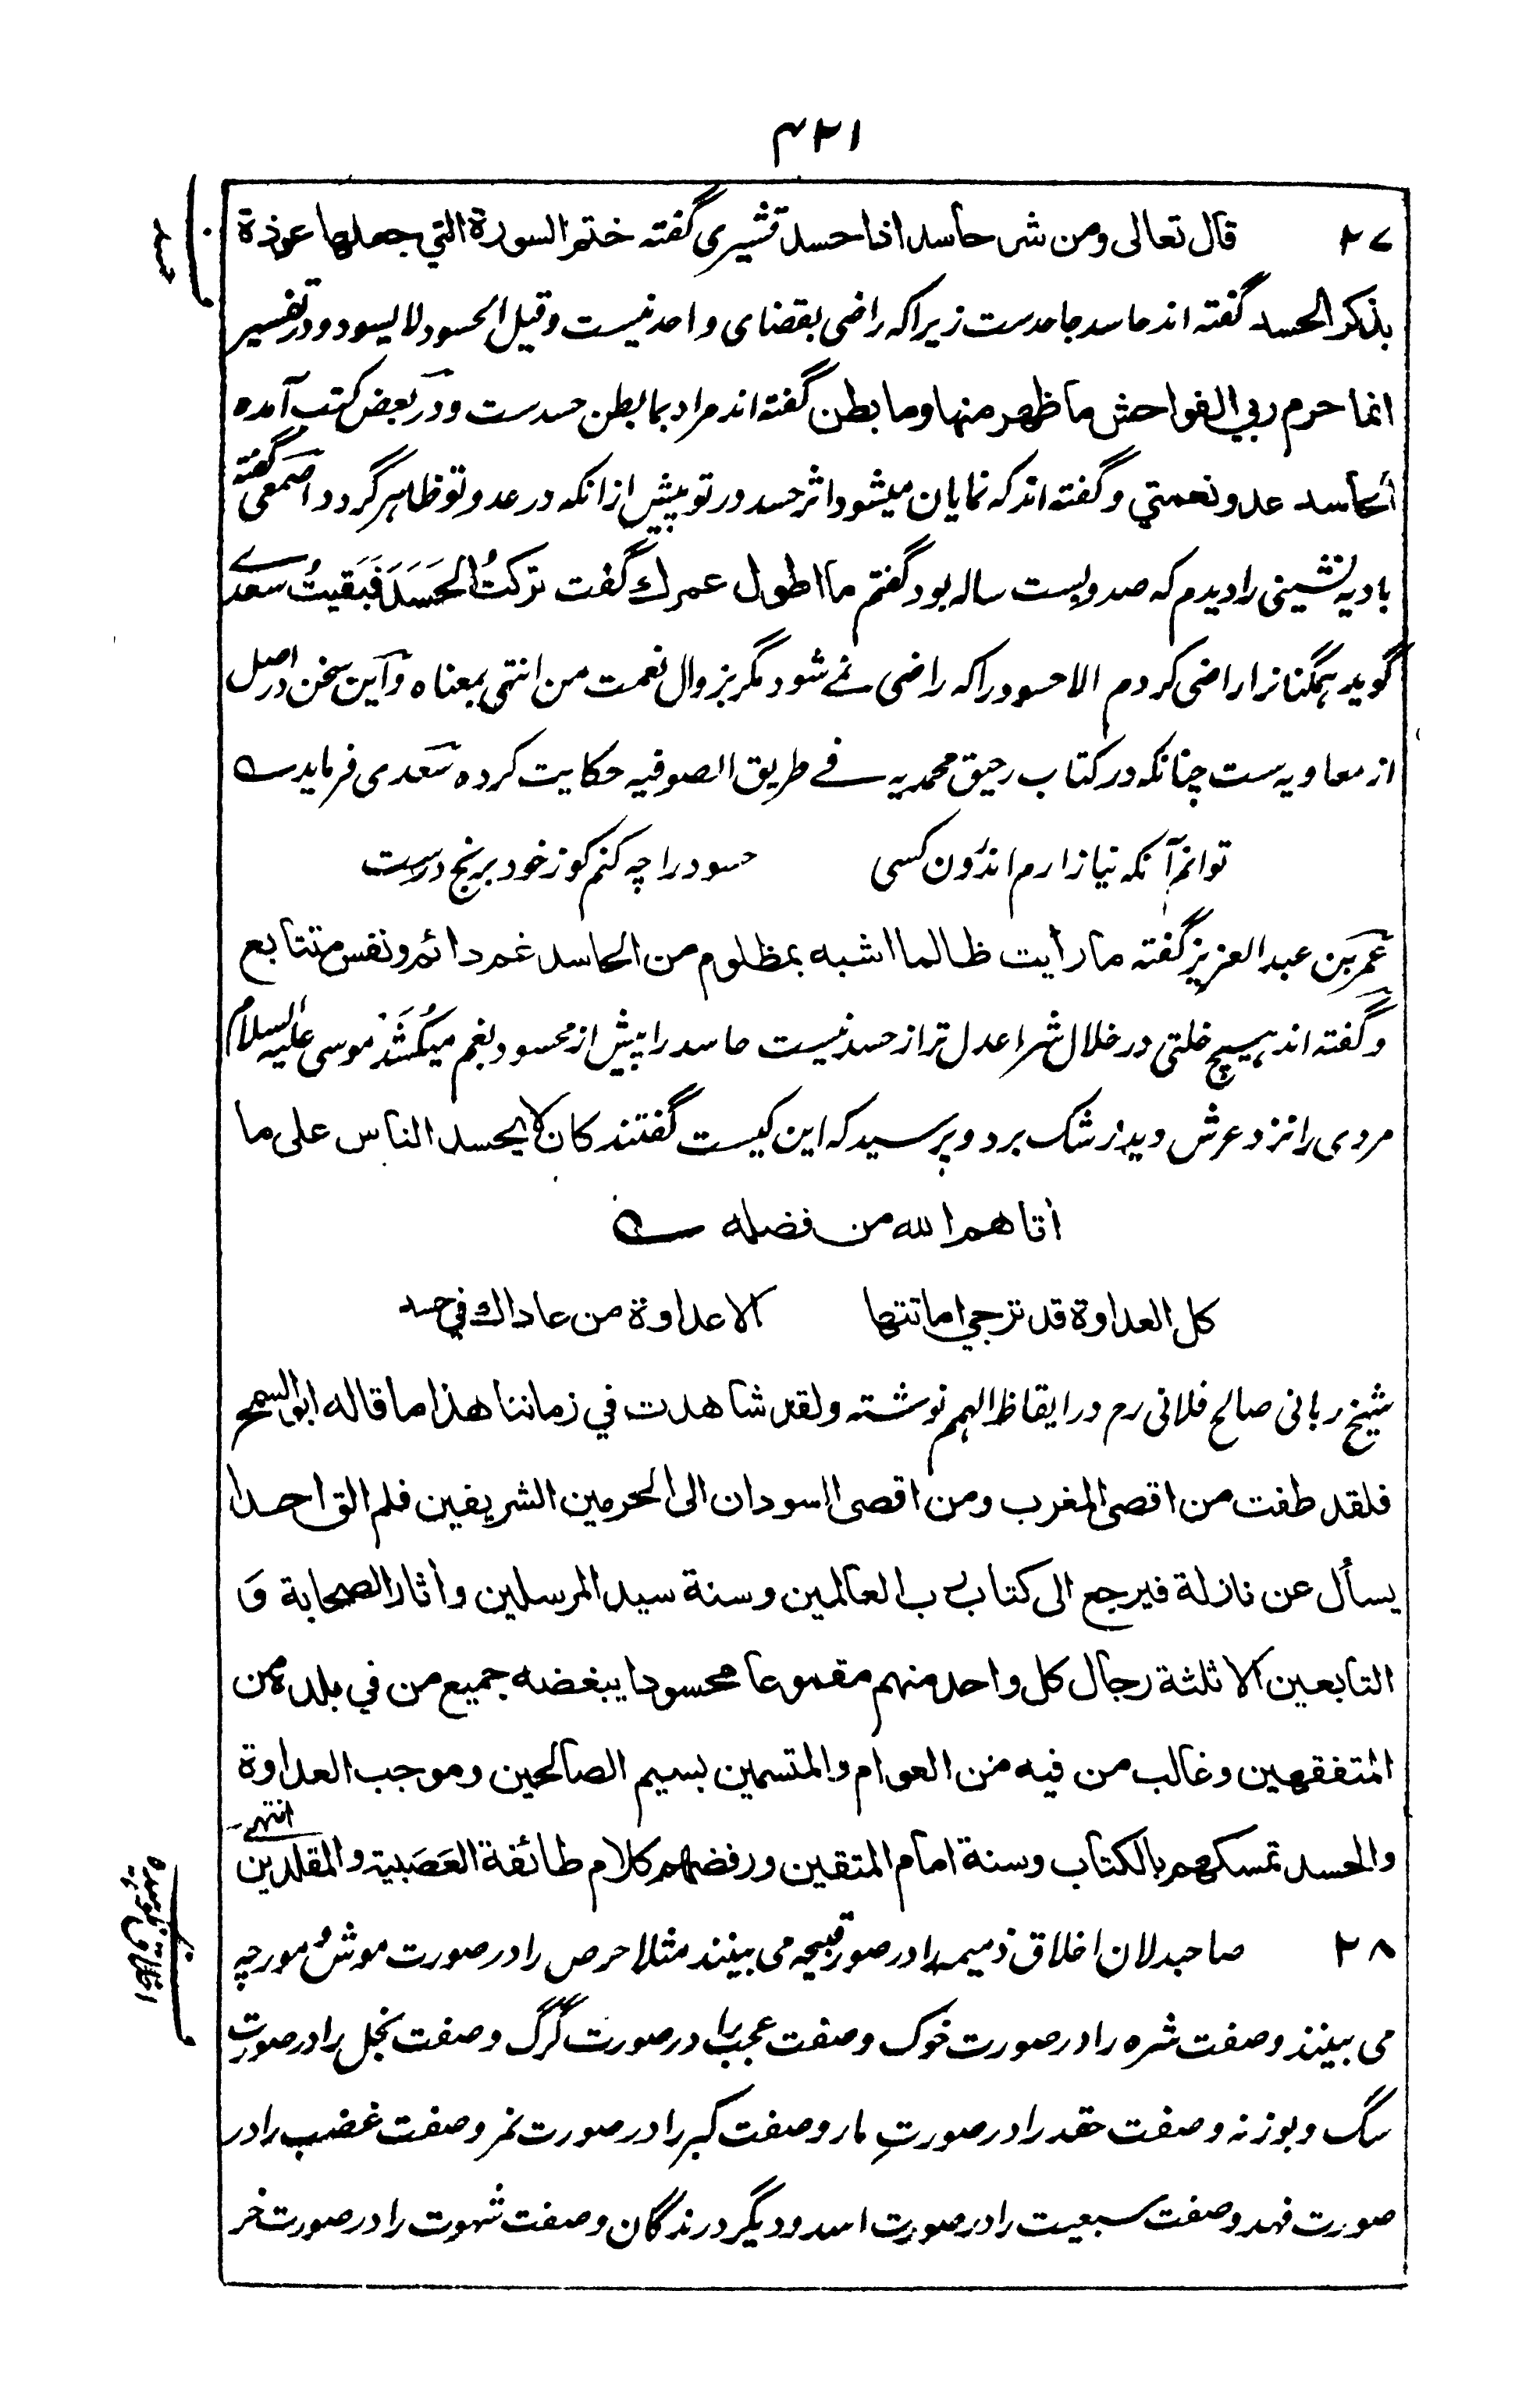 ۴۲۱
۲۷ قال تعالى ومن شر حاسد اذا حسد قشیری گفته ختم السورة التي جعلها عوذة
حسد
بذکر الحسد گفته اند حاسد جاحدست زیرا که راضی بقضای واحد نیست وقیل الحسود لا یسود و در تفسیر
انما حرم ربي الفواحش ما ظهر منها وما بطن گفته اند مراد بما بطن حسدست و در بعض کتب آمده
الحاسد عدو نعمتي و گفته اند که نمایان میشود اثر حسد در تو پیش ازانکه در عدو تو ظاهر گردد اصمعی گفته
بادیه نشینی را دیدم که صد و بست ساله بود گفتم ما اطول عمرك گفت تركتُ الحَسَدَ فَبَقیتُ سعدے
گوید همگنانرا راضی کردم الا حسود را که راضی نمے شود مگر بزوال نعمت من انتهی بمعناه و این سخن در اصل
از معاویه ست چنانکه در کتاب رحیق محمدیه فے طریق الصوفیه حکایت کرده سعدی فرماید
توانم آنکه نیازارم اندرون کسی حسود را چه کنم کو ز خود برنج درست
عمر بن عبد العزیز گفته ما رأيت ظالما اشبه بمظلوم من الحاسد غم دائم ونفس متتابع
و گفته اند هیچ خلتی در خلال شر اعدل تر از حسد نیست حاسد را پیش از محسود بغم میکُشَد موسی علیه السلام
مردی را نزد عرش دید رشک برد و پرسید که این کیست گفتند كان لا يحسد الناس على ما
أتاهم الله من فضله
كل العداوة قد ترجى اماتتها الا عداوة من عاداك في حسد
شیخ ربانی صالح فلانی رح در ایقاظ الهمم نوشته ولقد شاهدت في زماننا هذا ما قاله ابو السمح
فلقد طفت من اقصى المغرب ومن اقصى السودان الى الحرمين الشريفين فلم الق احدا
يسأل عن نازلة فيرجع الى كتاب رب العالمين وسنة سيد المرسلين وأثار الصحابة و
التابعين الا ثلثة رجال كل واحد منهم مقموعا محسودا يبغضه جميع من في بلده من
المتفقهين وغالب من فيه من العوام والمتسمين بسيم الصالحين وموجب العداوة
والحسد تمسكهم بالكتاب وسنة امام المتقين ورفضهم كلام طائفة العَصَبية والمقلدين انتهى
۲۸ صاحبدلان اخلاق ذمیمه را در صور قبیحه می بینند مثلا حرص را در صورت موش و مورچه
می بینند و صفت شره را در صورت خوک و صفت عجب را در صورت گرگ و صفت بخل را در صورتِ
سگ و بوزنه و صفت حقد را در صورتِ مار و صفت کبر را در صورت نمر و صفت غضب را در
صورت فهد و صفت سبعیت را در صورت اسد و دیگر درندگان و صفت شهوت را در صورت خر